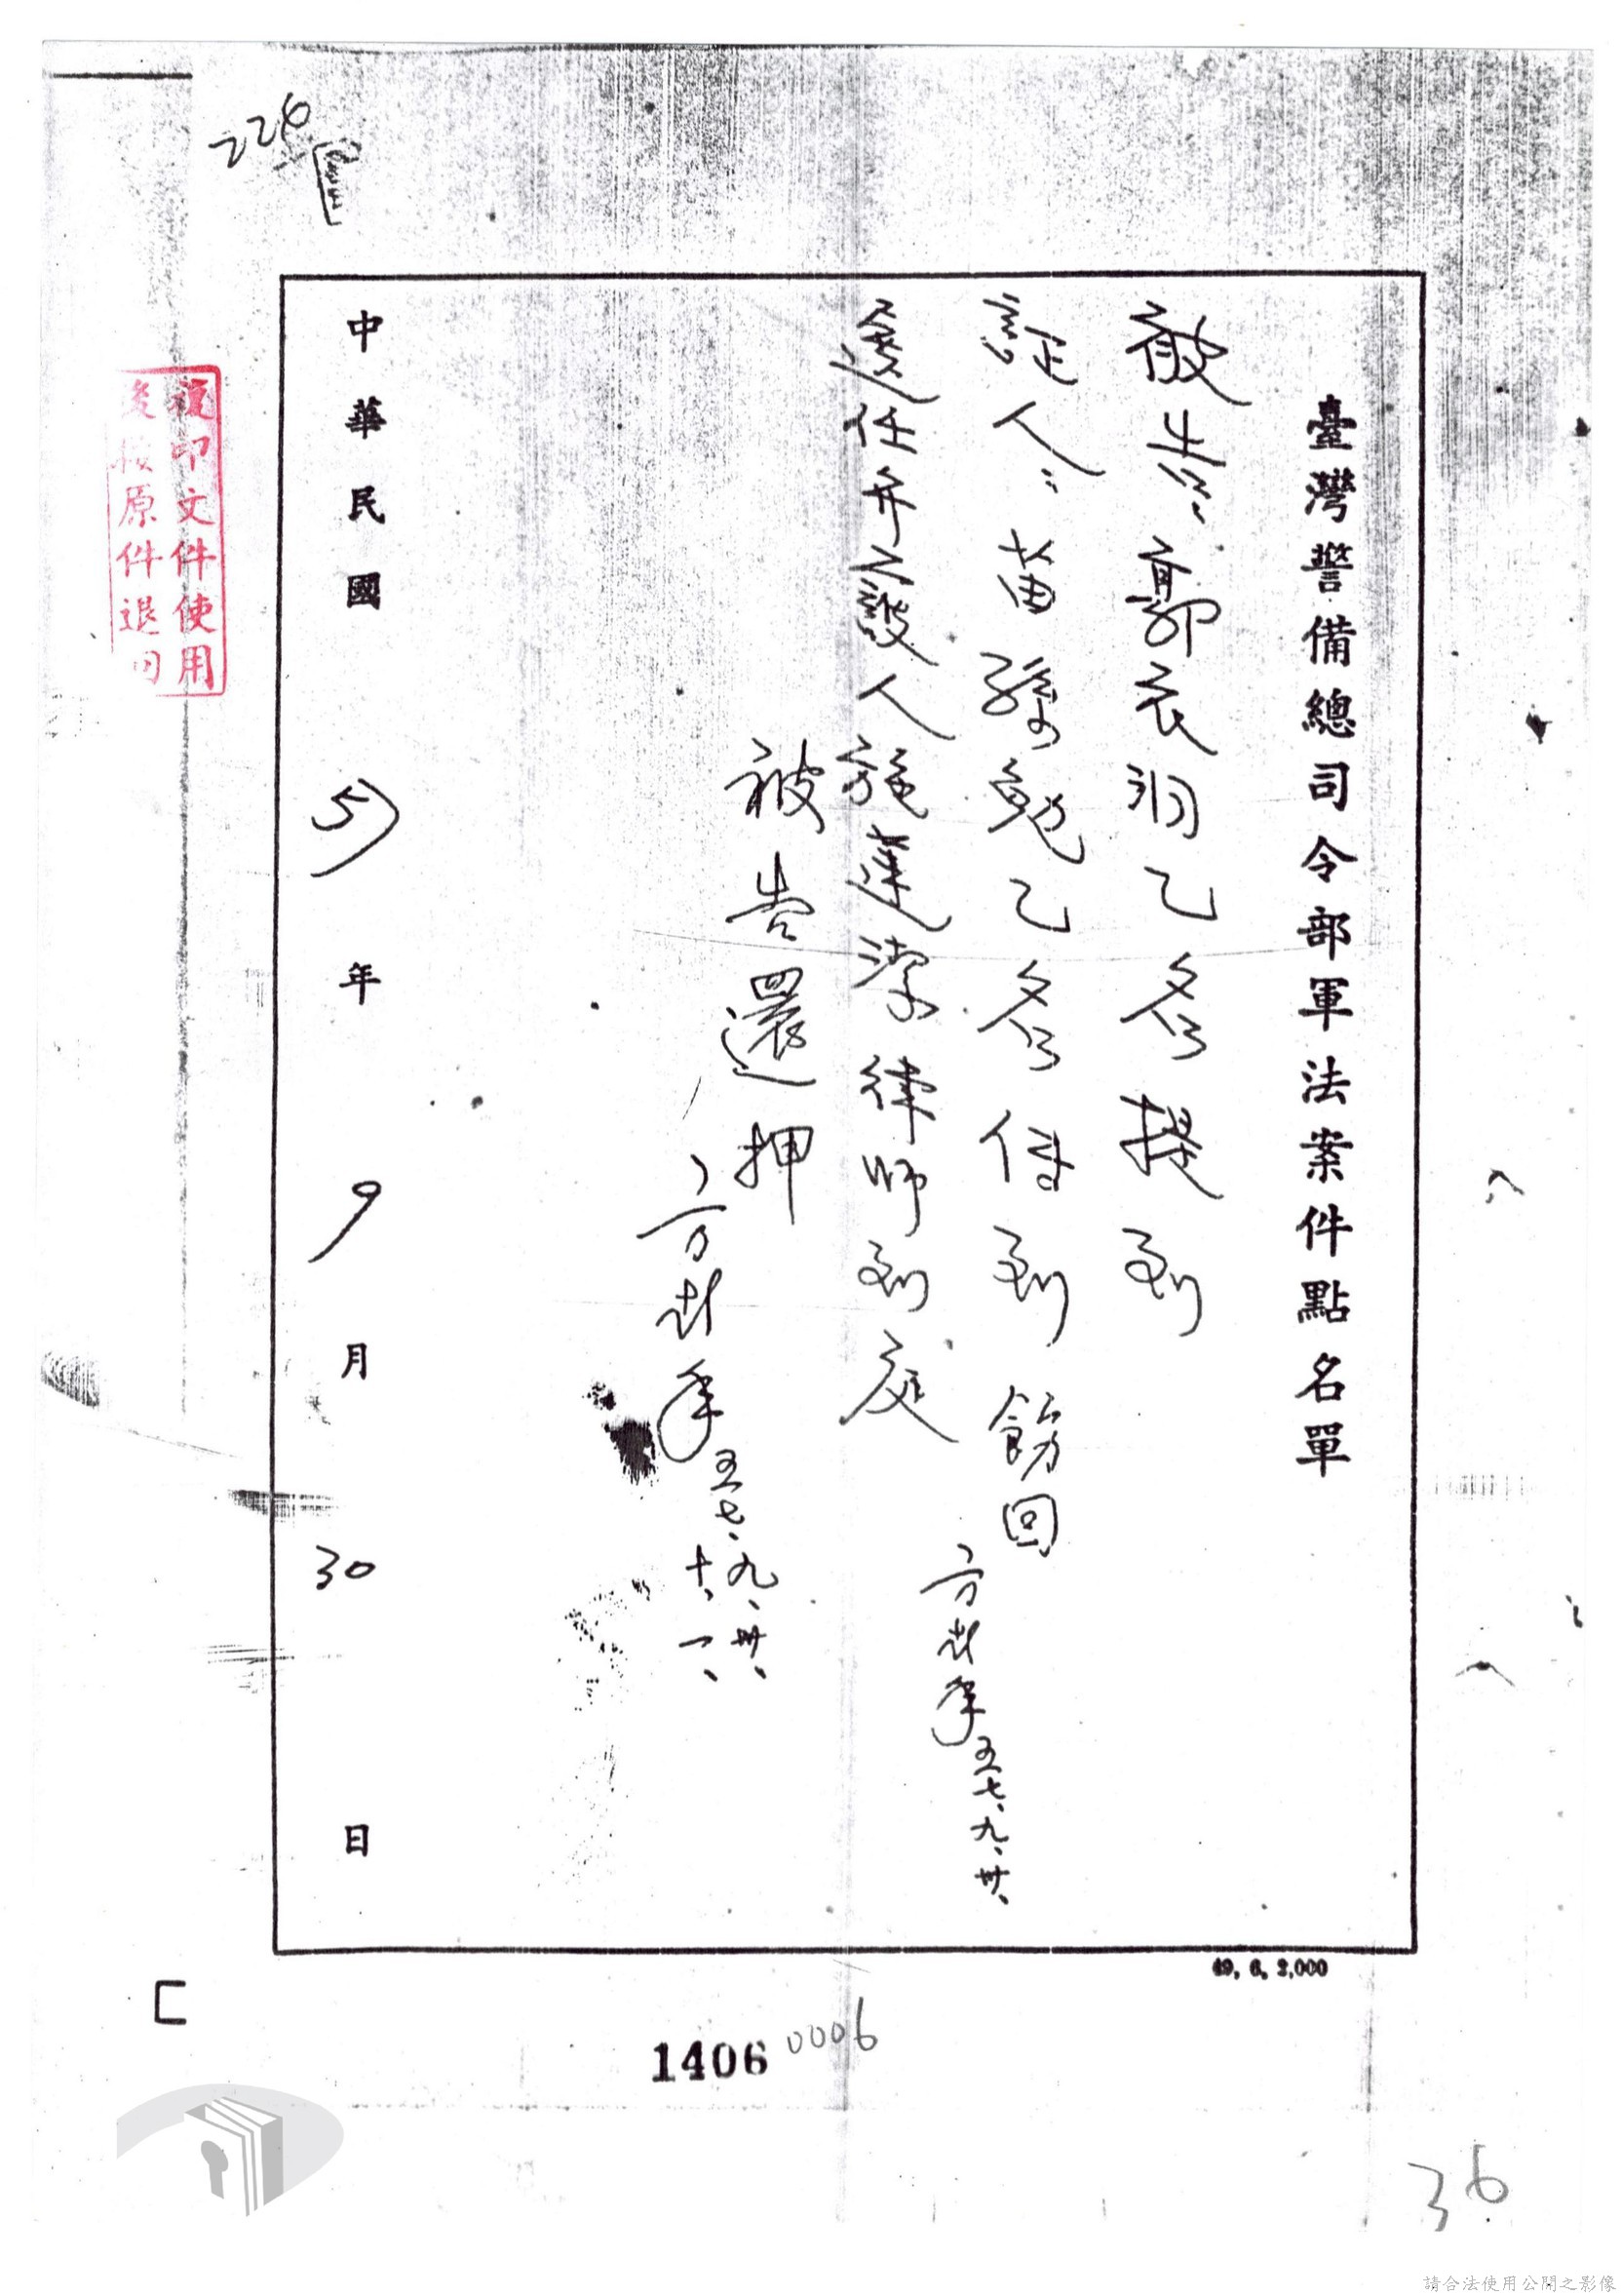 226
臺灣警備總司令部軍法案件點名單
被告：郭衣洞乙名提到
證人：苗 勉乙名傳到 飭回
方彭年 五七、九、卅、
選任弁護人 施達 律師到庭
被告還押
方彭年 五七、九、卅、
十、一、
中華民國 57 年 9 月 30 日
複印文件使用
後檢原件退回
49, 6, 2,000
1406
0006
36
請合法使用公開之影像